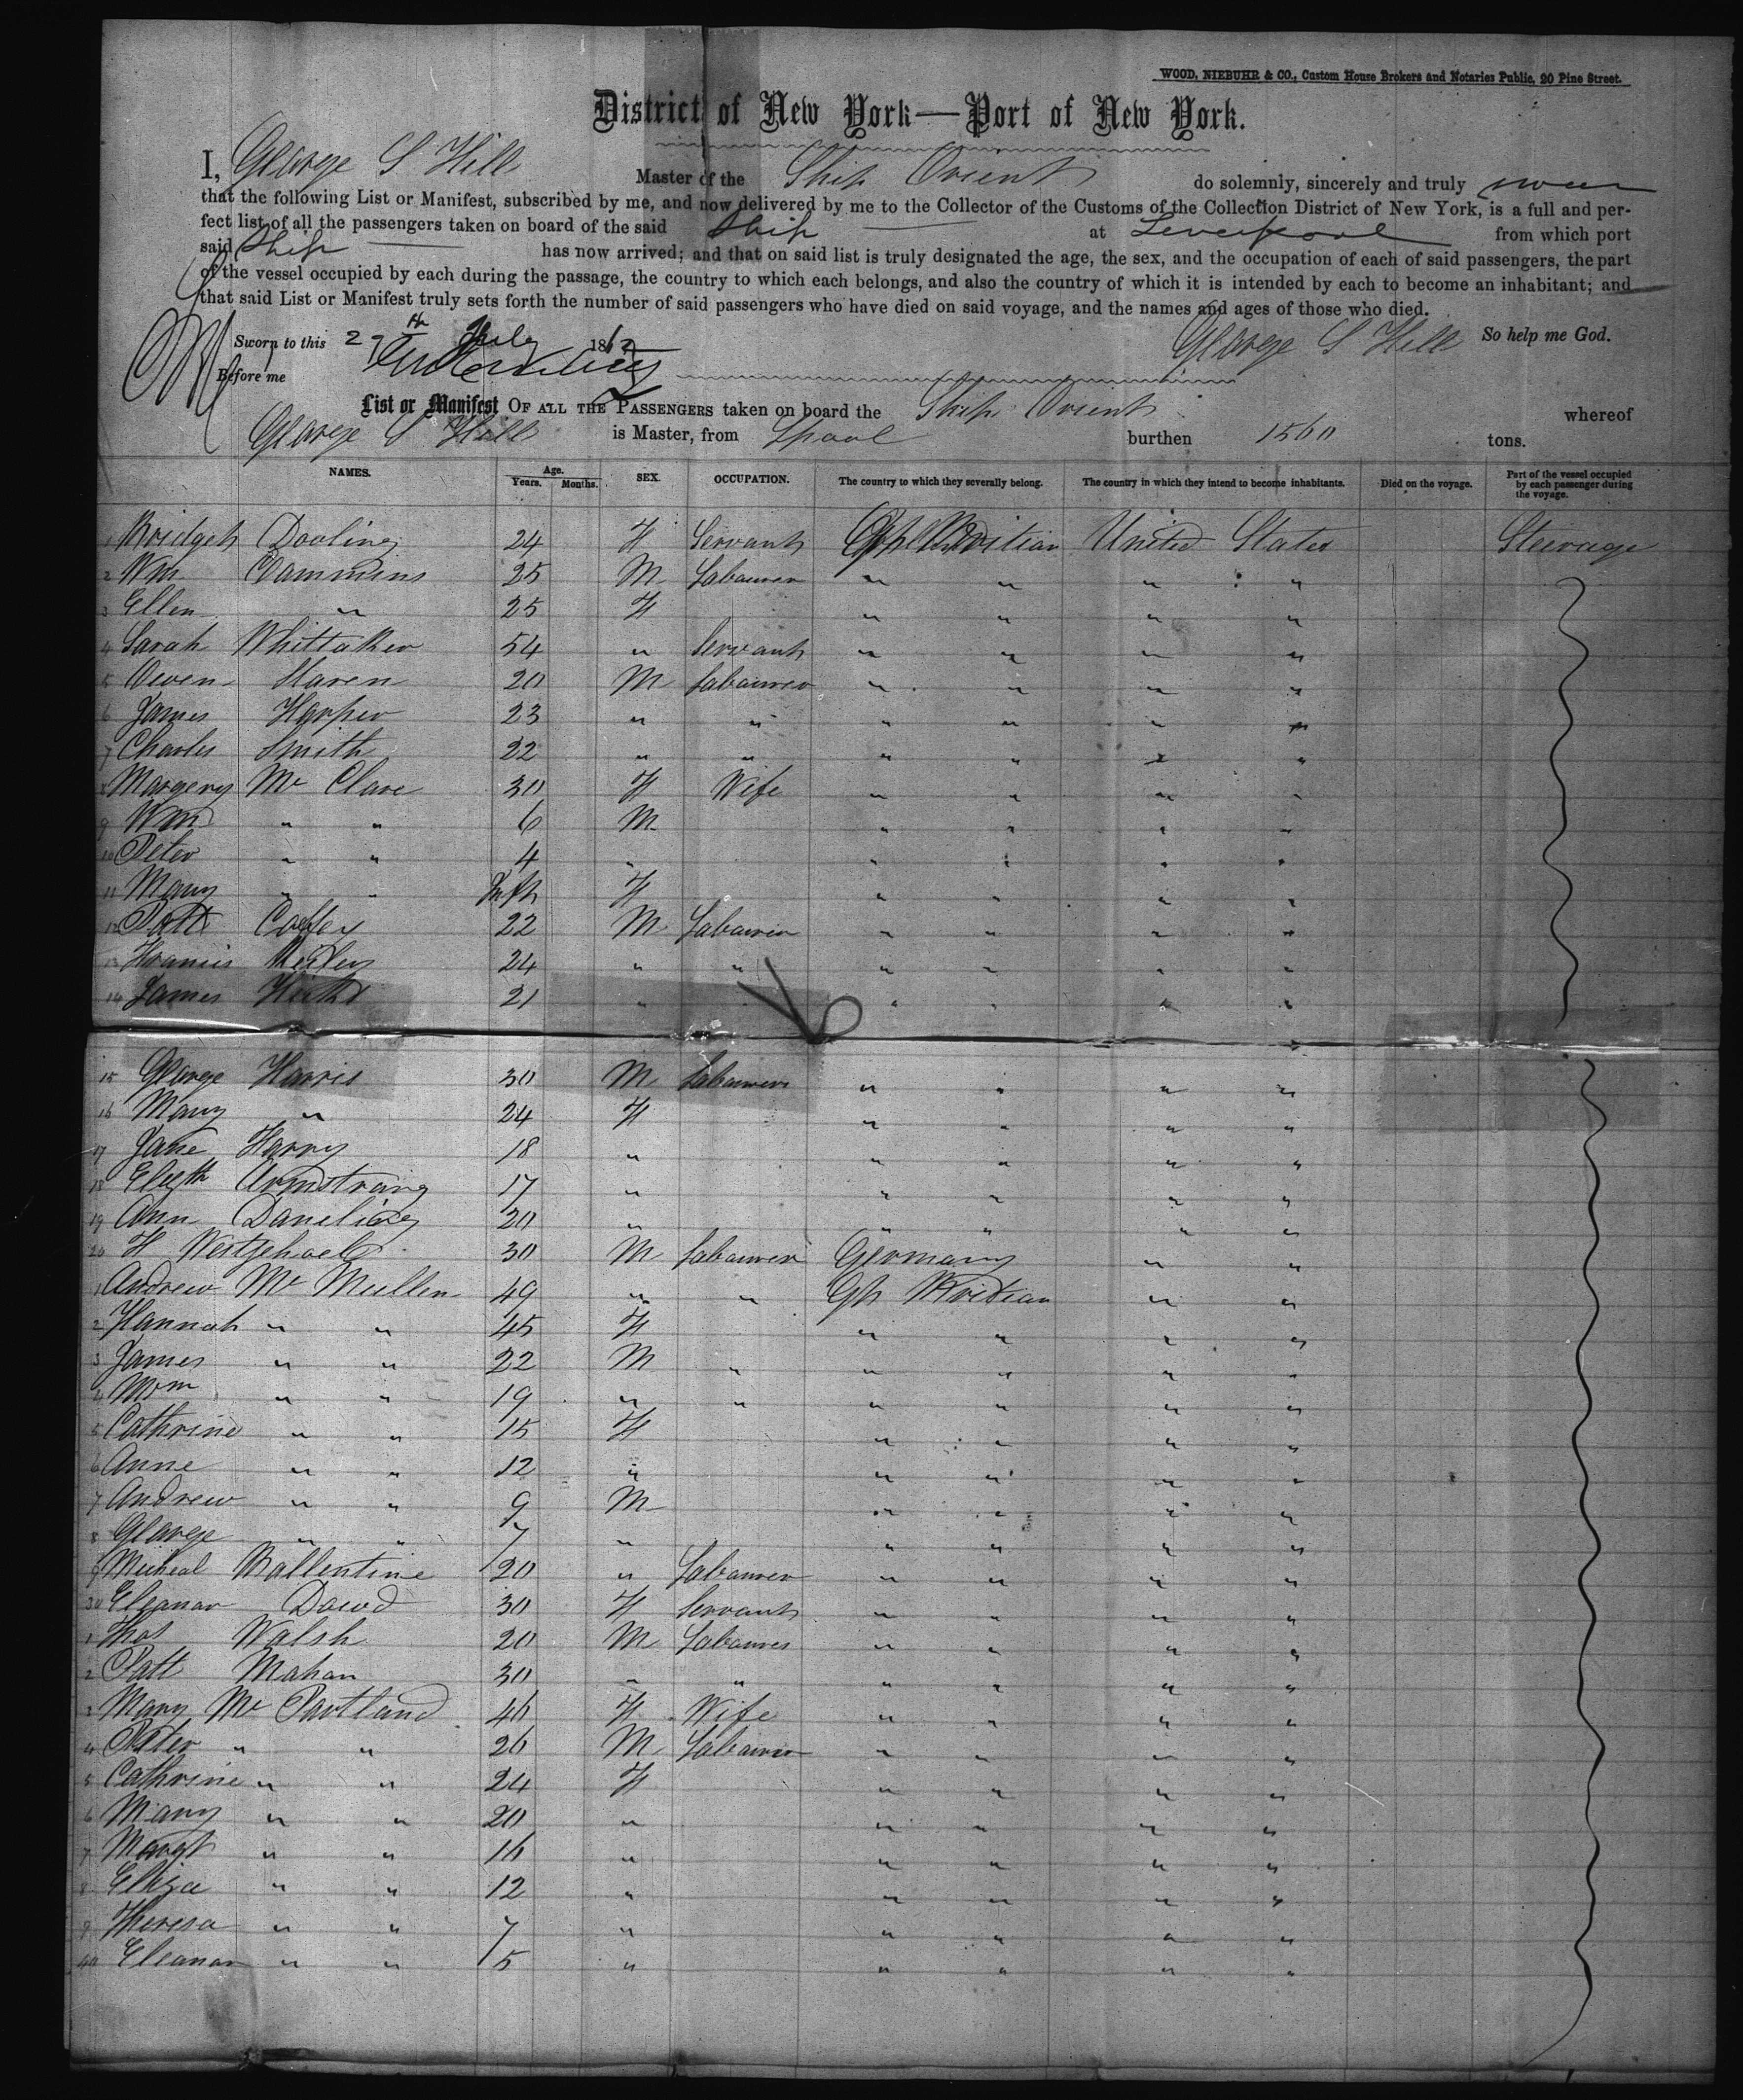 WOOD, NIEBUHR & CO., Custom House Brokers and Notaries Public, 20 Pine Street.
District of New York—Port of New York.
I, George S Hill Master of the Ship Orient do solemnly, sincerely and truly swear
that the following List or Manifest, subscribed by me, and now delivered by me to the Collector of the Customs of the Collection District of New York, is a full and per-
fect list of all the passengers taken on board of the said Ship at Liverpool from which port
said Ship has now arrived; and that on said list is truly designated the age, the sex, and the occupation of each of said passengers, the part
of the vessel occupied by each during the passage, the country to which each belongs, and also the country of which it is intended by each to become an inhabitant; and
that said List or Manifest truly sets forth the number of said passengers who have died on said voyage, and the names and ages of those who died.
Sworn to this 27th July 1862 George S Hill So help me God.
Before me
List or Manifest OF ALL THE PASSENGERS taken on board the Ship Orient whereof
George S Hill is Master, from Lpool burthen 1560 tons.
NAMES. Age. Years. Months. SEX. OCCUPATION. The country to which they severally belong. The country in which they intend to become inhabitants. Died on the voyage. Part of the vessel occupied by each passenger during the voyage.
1 Bridget Dooling 24 F Servant Britian United States Steerage
2 Wm Cammins 25 M Labourer " " " "
3 Ellen " 25 F " " " "
4 Sarah Whittaker 54 " Servant " " " "
5 Owen Haren 20 M Labourer " " " "
6 James Harper 23 " " " " " "
7 Charles Smith 22 " " " " " "
8 Margery Mc Clare 30 F Wife " " " "
9 Wm " " 6 M " " " "
10 Peter " " 4 " " " " "
11 Mary " " Inft F " " " "
12 Patt Coffey 22 M Labourer " " " "
13 Francis 24 " " " " " "
14 James 21 " " " " " "
15 George Harris 30 M Labourer " " " "
16 Mary " 24 F " " " "
17 Jane Harry 18 " " " " "
18 Elizth Armstrong 17 " " " " "
19 Ann 20 " " " " "
20 H 30 M Labourer Germany " "
1 Andrew Mc Mullen 49 " " Gt Britian " "
2 Hannah " " 45 F " " " "
3 James " " 22 M " " " " "
4 Wm " " 19 " " " " " "
5 Cathrine " " 15 F " " " "
6 Anne " " 12 " " " " "
7 Andrew " " 9 M " " " "
8 George " " 7 " " " " "
9 Micheal Ballentine 20 " Labourer " " " "
30 Eleanor Dowd 30 F Servant " " " "
1 Thos Walsh 20 M Labourer " " " "
2 Patt Mahan 30 " " " " " "
3 Mary Mc Partland 46 F Wife " " " "
4 Peter " " 26 M Labourer " " " "
5 Cathrine " " 24 F " " " "
6 Mary " " 20 " " " " "
7 Margt " " 16 " " " " "
8 Eliza " " 12 " " " " "
9 Theresa " " 7 " " " " "
40 Eleanor " " 5 " " " " "